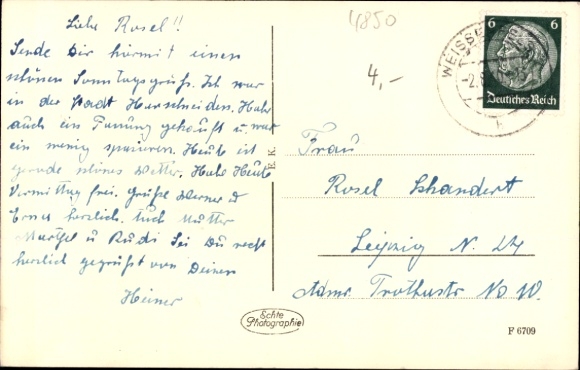 Liebe Rosel!!
Sende Dir hiermit einen
schönen Sonntagsgruß. Ich war
in der Stadt Haarschneiden. Habe
auch ein gekauft u. war
ein wenig spazieren. Heute ist
gerade schönes Wetter. Habe Heute
Vormittag frei. Grüße Werner u
Erna herzlich. Auch Mutter
u Rudi Sei Du recht
herzlich gegrüßt von Deinem
Heiner
4850
4,-
WEISSE
6 6
Deutsches Reich
Frau
Rosel
Leipzig N. 24
No
E. K.
Echte
Photographie
F 6709